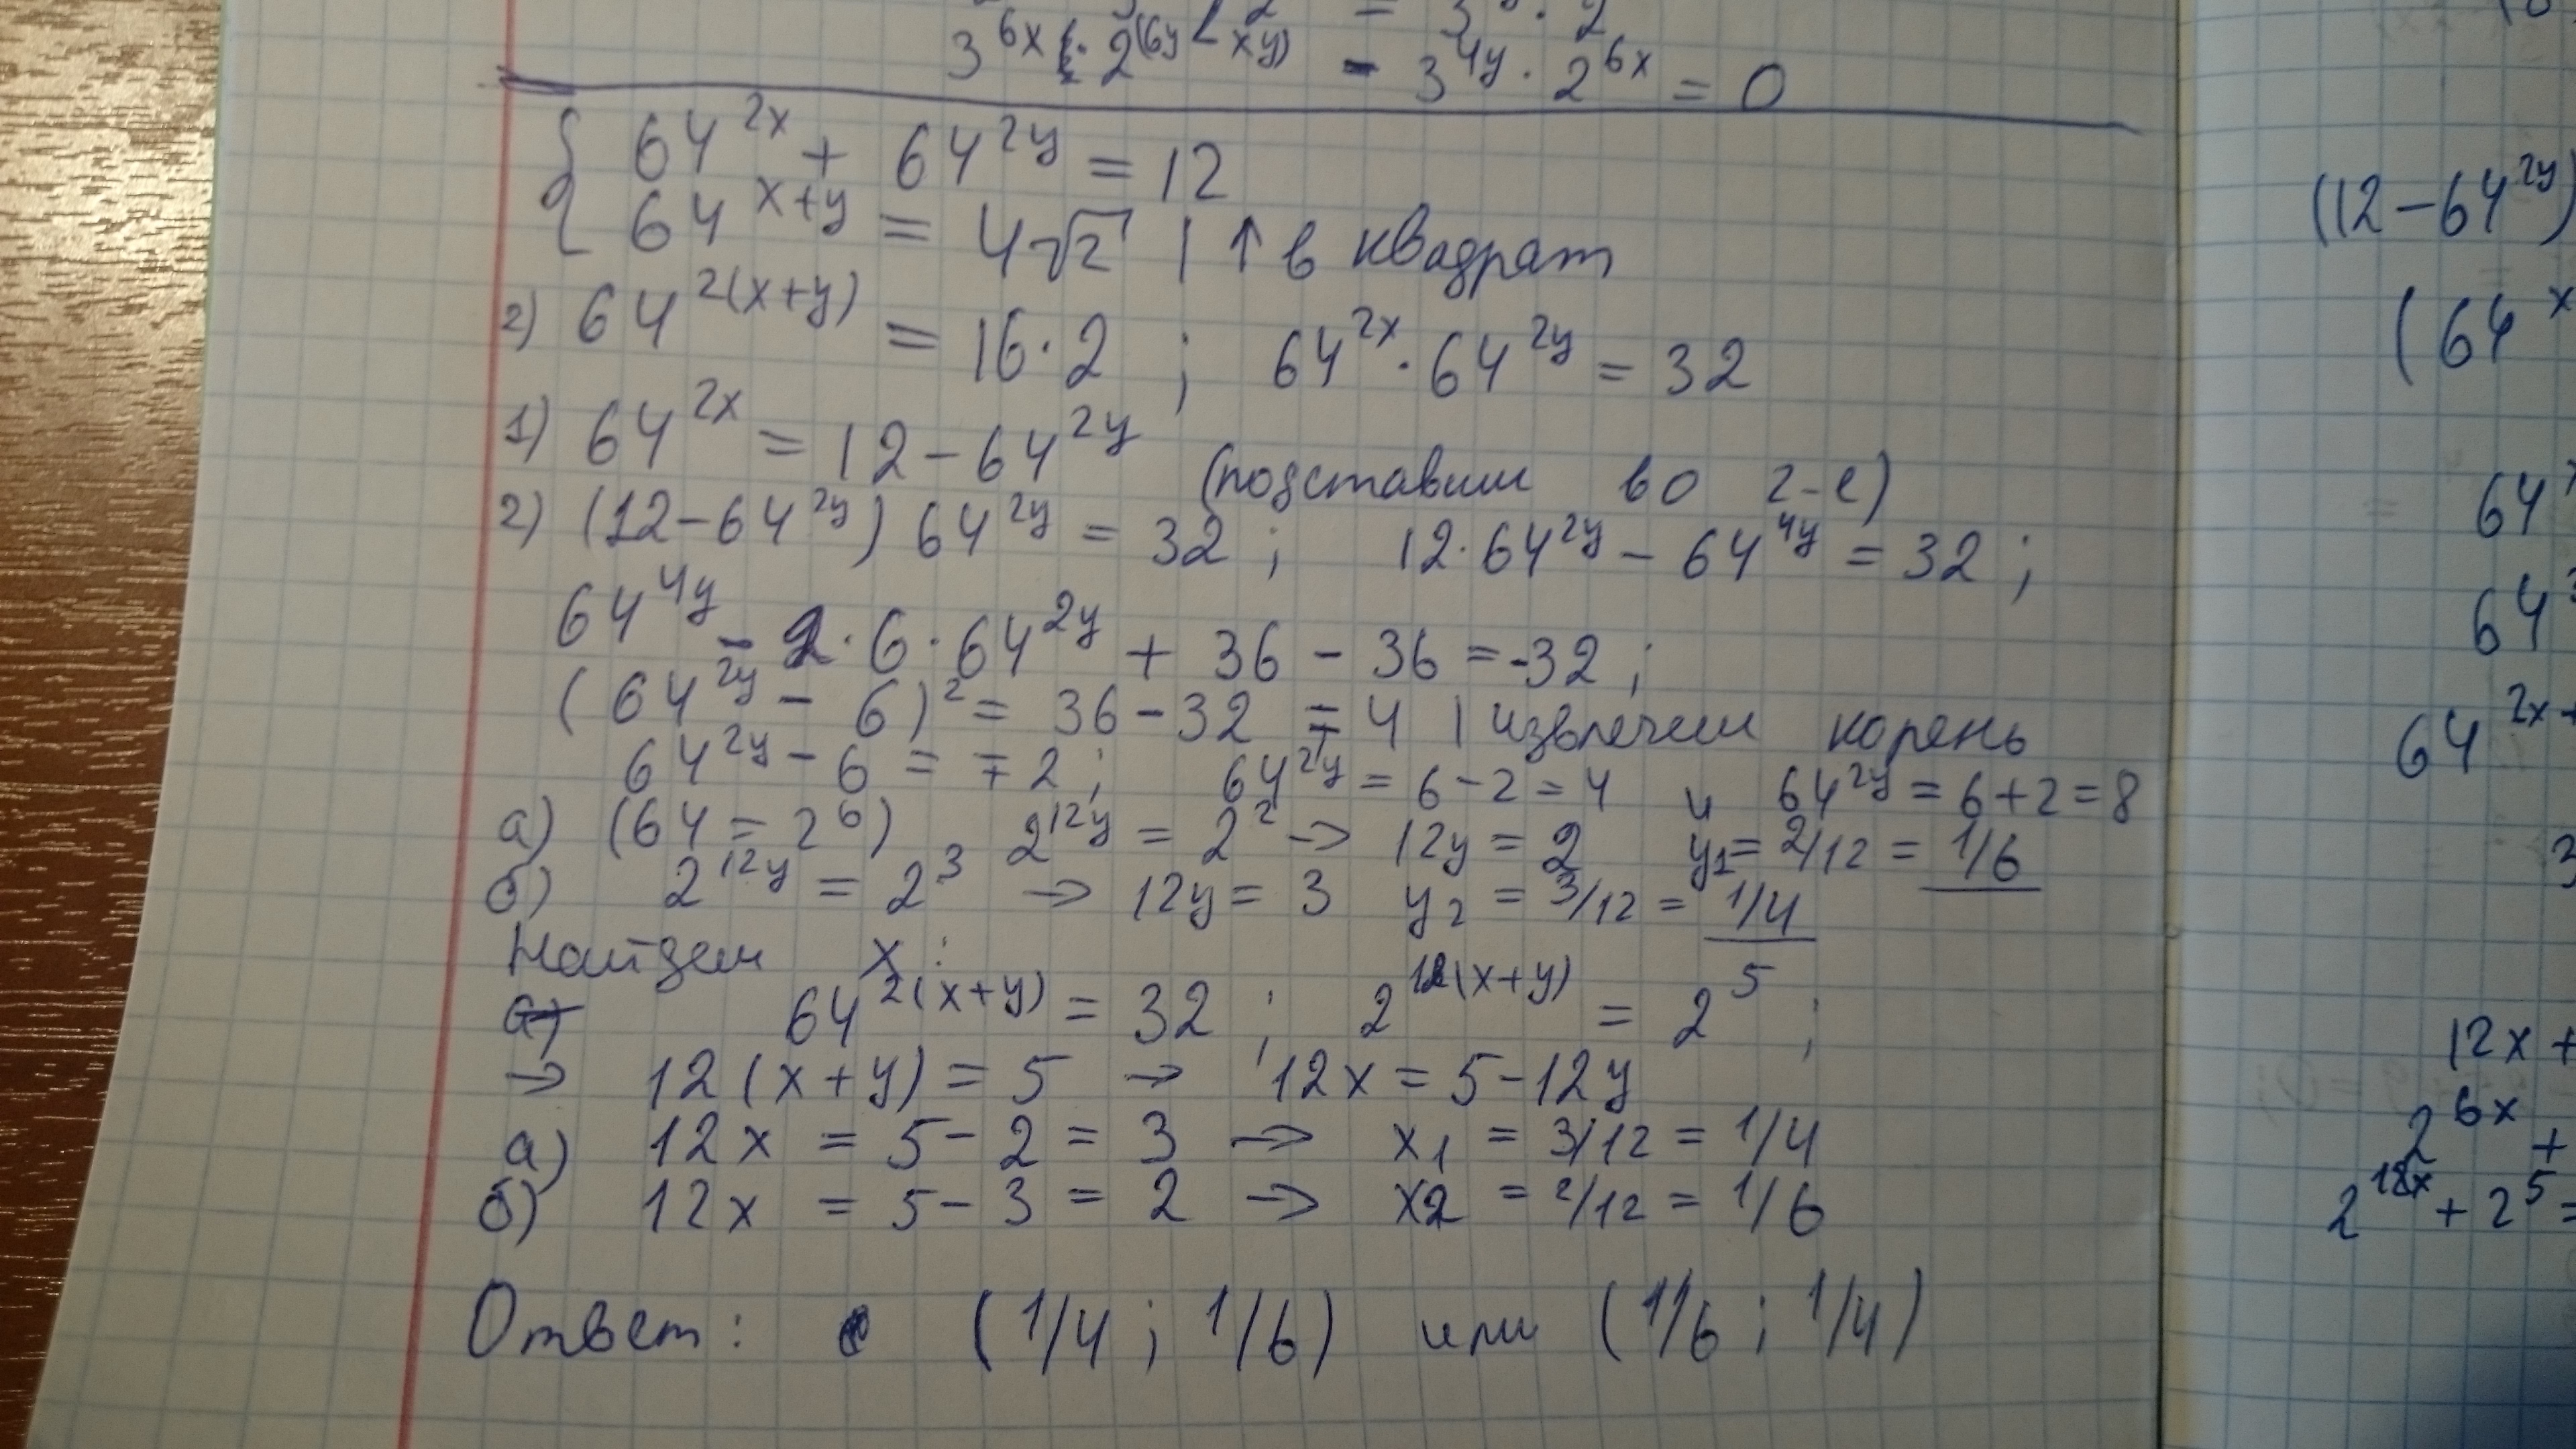 3^6x · 2^(6y xy) - 3^4y · 2^6x = 0
{ 64^2x + 64^2y = 12
64^x+y = 4√2 | ↑ в квадрат
2) 64^2(x+y) = 16·2 ; 64^2x · 64^2y = 32
1) 64^2x = 12 - 64^2y (подставим во 2-е)
2) (12 - 64^2y) 64^2y = 32 ; 12·64^2y - 64^4y = 32 ;
64^4y - 2·6·64^2y + 36 - 36 = -32 ;
(64^2y - 6)^2 = 36 - 32 = 4 | извлечем корень
64^2y - 6 = ∓ 2 ; 64^2y = 6 - 2 = 4 и 64^2y = 6 + 2 = 8
а) (64 = 2^6) 2^12y = 2^2 → 12y = 2 y1 = 2/12 = 1/6
б) 2^12y = 2^3 → 12y = 3 y2 = 3/12 = 1/4
Найдем x :
64^2(x+y) = 32 ; 2^12(x+y) = 2^5 ;
→ 12(x+y) = 5 → 12x = 5 - 12y
а) 12x = 5 - 2 = 3 → x1 = 3/12 = 1/4
б) 12x = 5 - 3 = 2 → x2 = 2/12 = 1/6
Ответ: (1/4 ; 1/6) или (1/6 ; 1/4)
(12 - 64^2y)
(64^x
64
64
64^2x
12x +
2^6x +
2^12x + 2^5 =